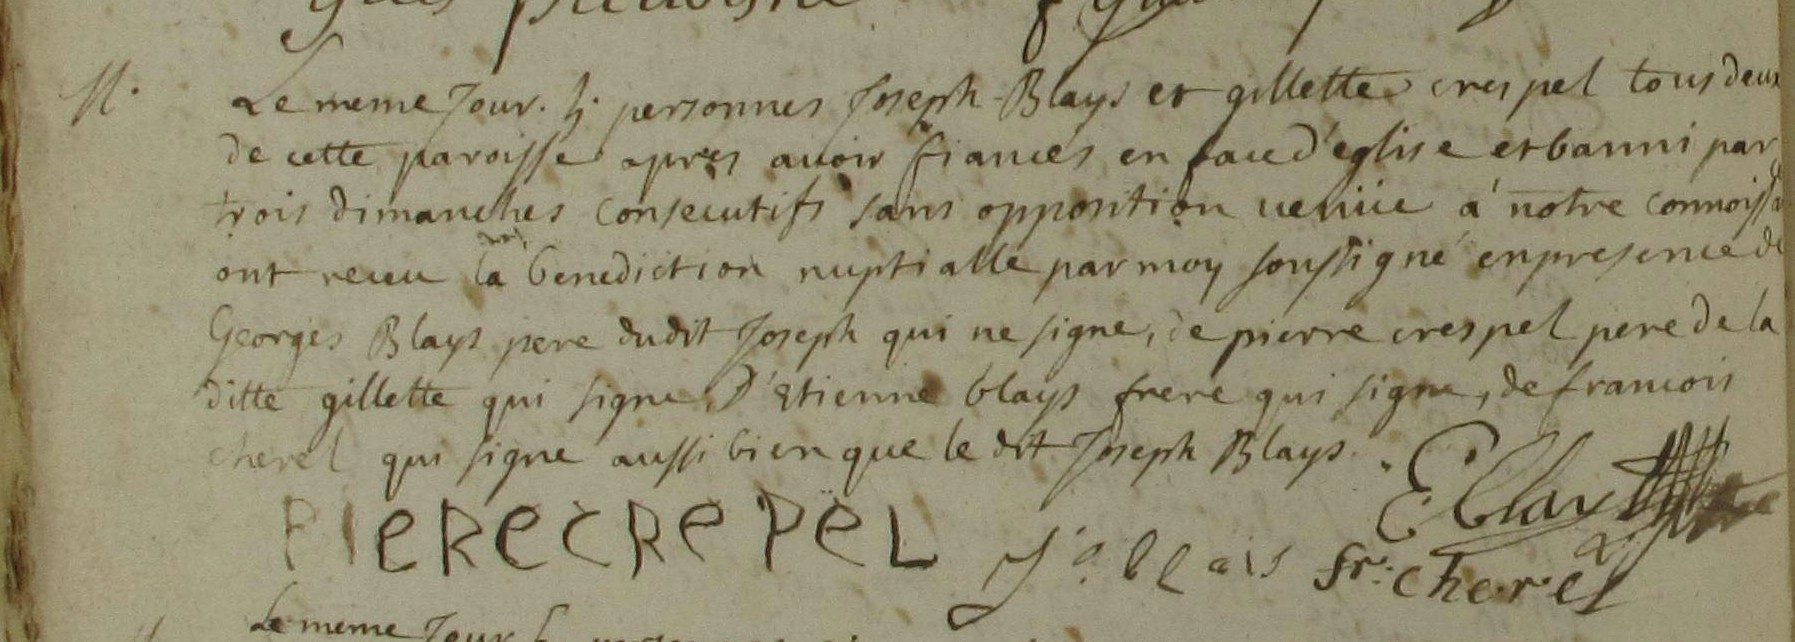 M.
Le meme Jour. h. personnes Joseph Blays et gillette crespel tous deux
de cette paroisse apres avoir fiances en face d'eglise et banni par
trois dimanches consecutifs sans opposition venüe a notre connoiss
ont receu la benediction nuptialle par moy soussigné en presence de
Georges Blays pere dudit Joseph qui ne signe, de pierre crespel pere de la
ditte gillette qui signe, D'Etienne blays frere qui signe, de francois
cherel qui signe aussi bien que le dit Joseph Blays.
PIERECREPEL J. blais fr. cherel E Blays
Le meme Jour h